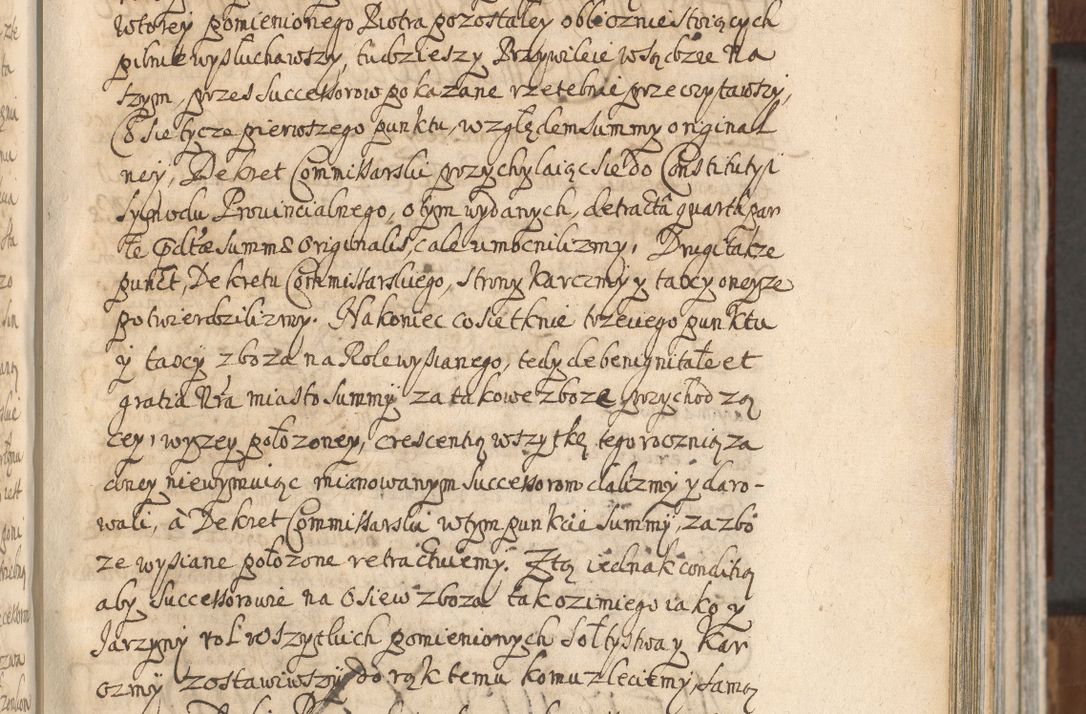 wtorey pomienionego Piotra pozostałey oblicznie stoiących
pilnie wysłuchawszy, tudzieszy Przywileie w Sądzie Na
szym, przes Successorow pokazane rzetelnie przeczytawszy,
Co sie tycze pierwszego punktu, względem summy original
ney, Dekret Commissarski przychylaiąc sie do Constitutyi
Synodu Prouincialnego, o tym wydanych, detractâ quartâ par
te Edtæ summæ originalis, cale umocnilizmy. Drugi także
punct, Dekretu Commissarskiego, strony Karczmy y taxy oneyze
potwierdzilizmy. Nakoniec co sie tknie trzeciego punktu
y taxy zboza na Role wysianego, tedy de benignitate et
gratia Nrâ miasto summy za takowe zboze przychodzą
cey, wyzey położoney, crescentią wszytkę tegoroczniąza
sianey niewymuiąc mianowanym Successorom dalizmy y daro-
wali, à Dekret Commissarski w tym punkcie summy, za zbo
ze wysiane położone retractuiemy. Z tą iednak conditią
aby Successorowie na Osiew zboza tak ozimiego iako y
Jarzyny rol wszytkich pomienionych Sołtystwa y Kar
czmy zostawiwszy do rąk temu komu zleciemy, samą